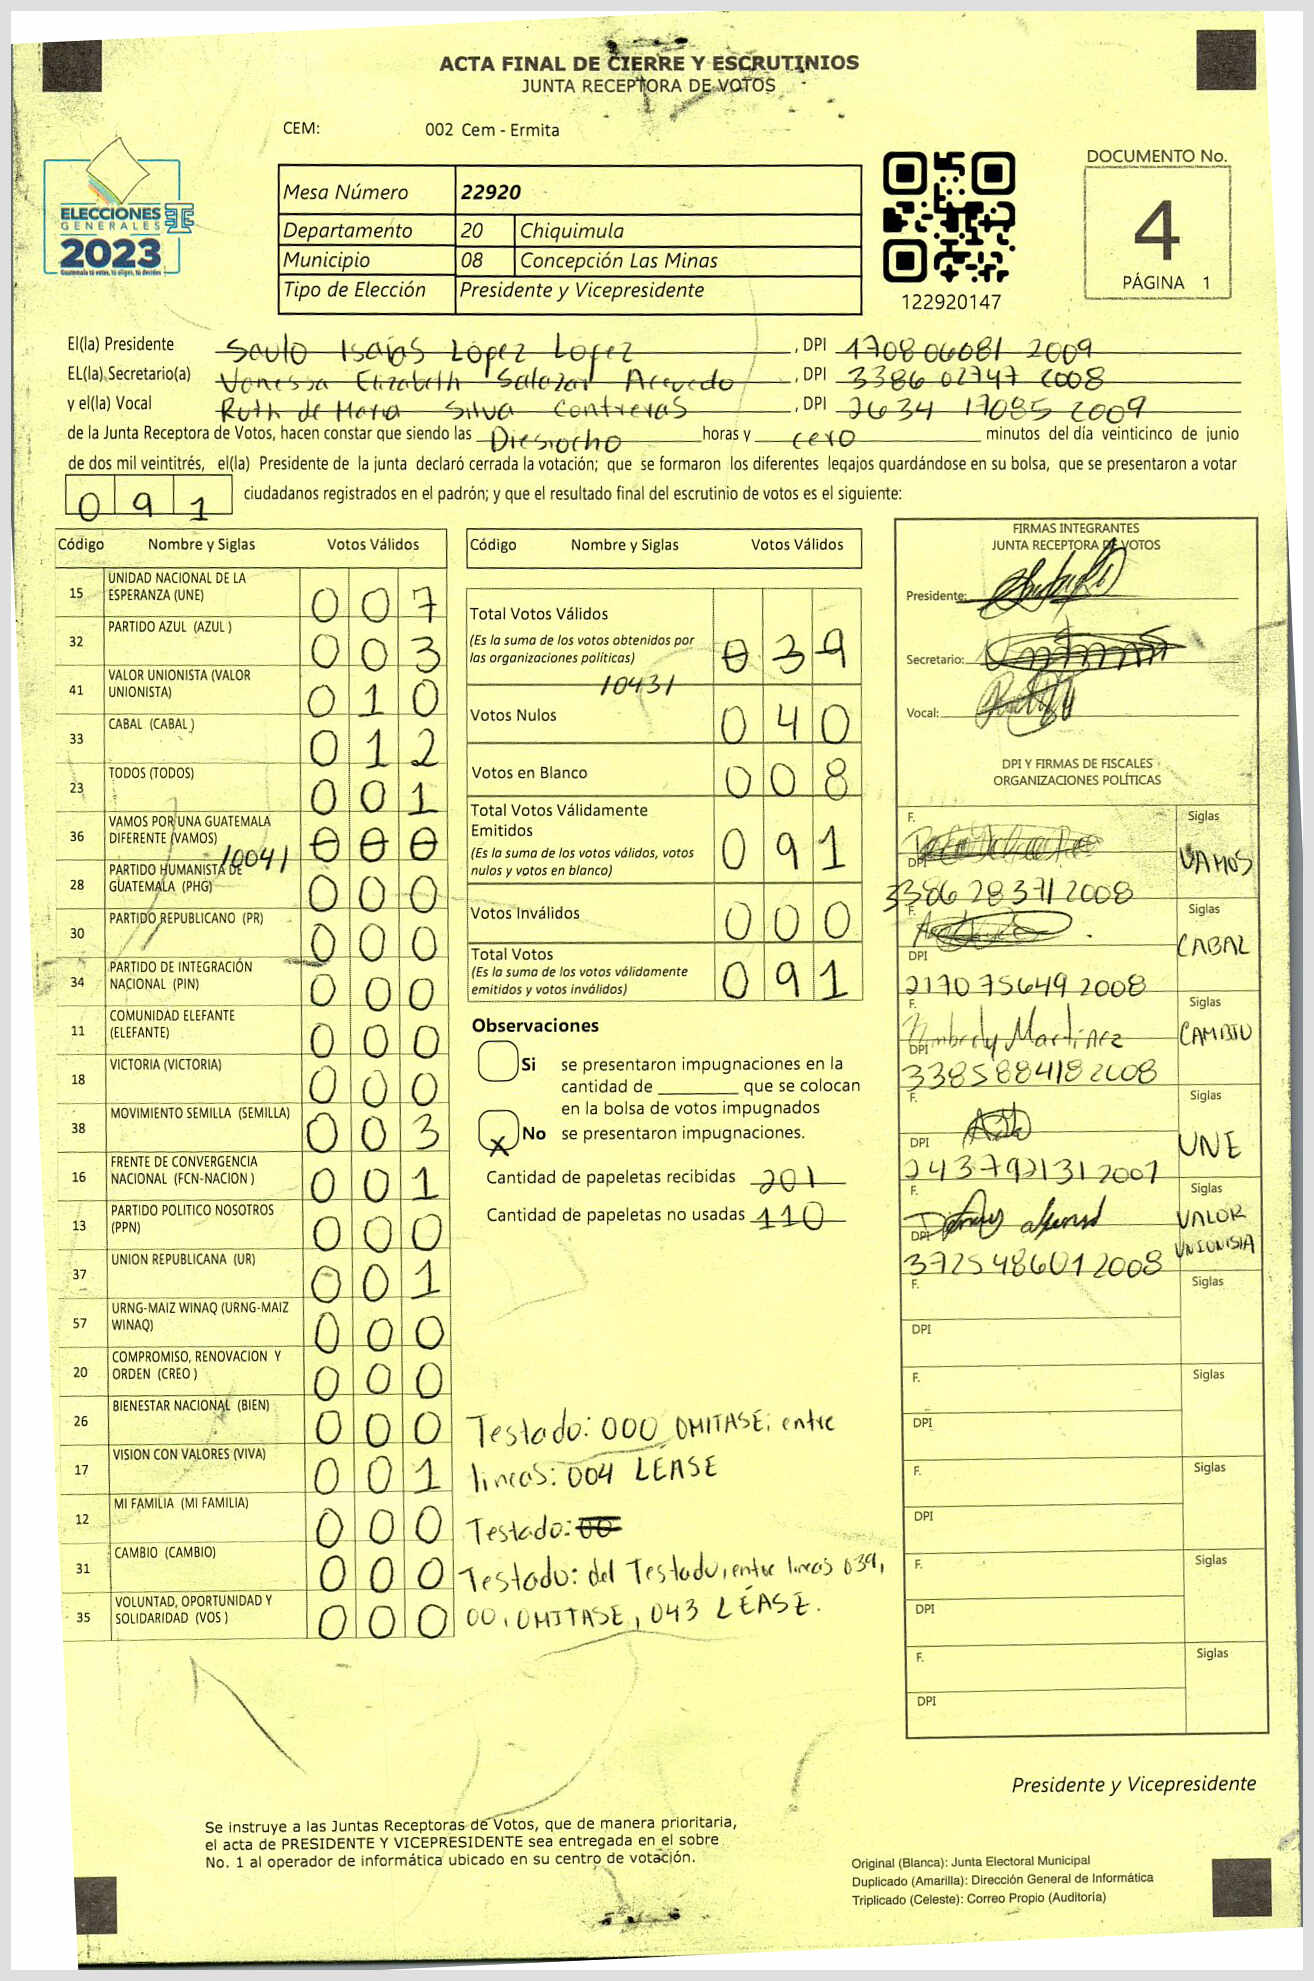 ACTA FINAL DE CIERRE Y ESCRUTINIOS
JUNTA RECEPTORA DE VOTOS
CEM: 002 Cem - Ermita
ELECCIONES
GENERALES
2023
Guatemala tú votas, tú eliges, tú decides
Mesa Número 22920
Departamento 20 Chiquimula
Municipio 08 Concepción Las Minas
Tipo de Elección Presidente y Vicepresidente
122920147
DOCUMENTO No.
4
PÁGINA 1
El(la) Presidente Saulo Isaias López López, DPI 170806081 2009
EL(la) Secretario(a) Vanessa Elizabeth Salazar Acevedo, DPI 3386 02747 2008
y el(la) Vocal Ruth de Maria Silva Contreras, DPI 2634 17085 2009
de la Junta Receptora de Votos, hacen constar que siendo las Diesiocho horas y cero minutos del día veinticinco de junio
de dos mil veintitrés, el(la) Presidente de la junta declaró cerrada la votación; que se formaron los diferentes legajos guardándose en su bolsa, que se presentaron a votar
0 9 1 ciudadanos registrados en el padrón; y que el resultado final del escrutinio de votos es el siguiente:
Código Nombre y Siglas Votos Válidos
15 UNIDAD NACIONAL DE LA ESPERANZA (UNE) 0 0 7
32 PARTIDO AZUL (AZUL ) 0 0 3
41 VALOR UNIONISTA (VALOR UNIONISTA) 0 1 0
33 CABAL (CABAL ) 0 1 2
23 TODOS (TODOS) 0 0 1
36 VAMOS POR UNA GUATEMALA DIFERENTE (VAMOS) 0 0 0
10041
28 PARTIDO HUMANISTA DE GUATEMALA (PHG) 0 0 0
30 PARTIDO REPUBLICANO (PR) 0 0 0
34 PARTIDO DE INTEGRACIÓN NACIONAL (PIN) 0 0 0
11 COMUNIDAD ELEFANTE (ELEFANTE) 0 0 0
18 VICTORIA (VICTORIA) 0 0 0
38 MOVIMIENTO SEMILLA (SEMILLA) 0 0 3
16 FRENTE DE CONVERGENCIA NACIONAL (FCN-NACION ) 0 0 1
13 PARTIDO POLITICO NOSOTROS (PPN) 0 0 0
37 UNION REPUBLICANA (UR) 0 0 1
57 URNG-MAIZ WINAQ (URNG-MAIZ WINAQ) 0 0 0
20 COMPROMISO, RENOVACION Y ORDEN (CREO ) 0 0 0
26 BIENESTAR NACIONAL (BIEN) 0 0 0
17 VISION CON VALORES (VIVA) 0 0 1
12 MI FAMILIA (MI FAMILIA) 0 0 0
31 CAMBIO (CAMBIO) 0 0 0
35 VOLUNTAD, OPORTUNIDAD Y SOLIDARIDAD (VOS ) 0 0 0
Código Nombre y Siglas Votos Válidos
Total Votos Válidos
(Es la suma de los votos obtenidos por las organizaciones políticas) 0 3 9
10431
Votos Nulos 0 4 0
Votos en Blanco 0 0 8
Total Votos Válidamente Emitidos
(Es la suma de los votos válidos, votos nulos y votos en blanco) 0 9 1
Votos Inválidos 0 0 0
Total Votos
(Es la suma de los votos válidamente emitidos y votos inválidos) 0 9 1
Observaciones
Si se presentaron impugnaciones en la
cantidad de ________ que se colocan
en la bolsa de votos impugnados
X No se presentaron impugnaciones.
Cantidad de papeletas recibidas 201
Cantidad de papeletas no usadas 110
Testado: 000 OMITASE; entre
lineas: 004 LÉASE
Testado: 00
Testado: del Testado, entre lineas 039,
00, OMITASE, 043 LÉASE.
FIRMAS INTEGRANTES
JUNTA RECEPTORA DE VOTOS
Presidente:
Secretario:
Vocal:
DPI Y FIRMAS DE FISCALES
ORGANIZACIONES POLÍTICAS
F. Siglas
VAMOS
DPI
3386 28371 2008
F. Siglas
CABAL
DPI
2170 75649 2008
F. Siglas
Kimberly Martinez CAMBIO
DPI
3385 88418 2008
F. Siglas
DPI UNE
2437 92131 2007
F. Siglas
VALOR
DPI UNIONISTA
3725 48601 2008
F. Siglas
DPI
F. Siglas
DPI
F. Siglas
DPI
F. Siglas
DPI
F. Siglas
DPI
Presidente y Vicepresidente
Se instruye a las Juntas Receptoras de Votos, que de manera prioritaria,
el acta de PRESIDENTE Y VICEPRESIDENTE sea entregada en el sobre
No. 1 al operador de informática ubicado en su centro de votación.
Original (Blanca): Junta Electoral Municipal
Duplicado (Amarilla): Dirección General de Informática
Triplicado (Celeste): Correo Propio (Auditoría)